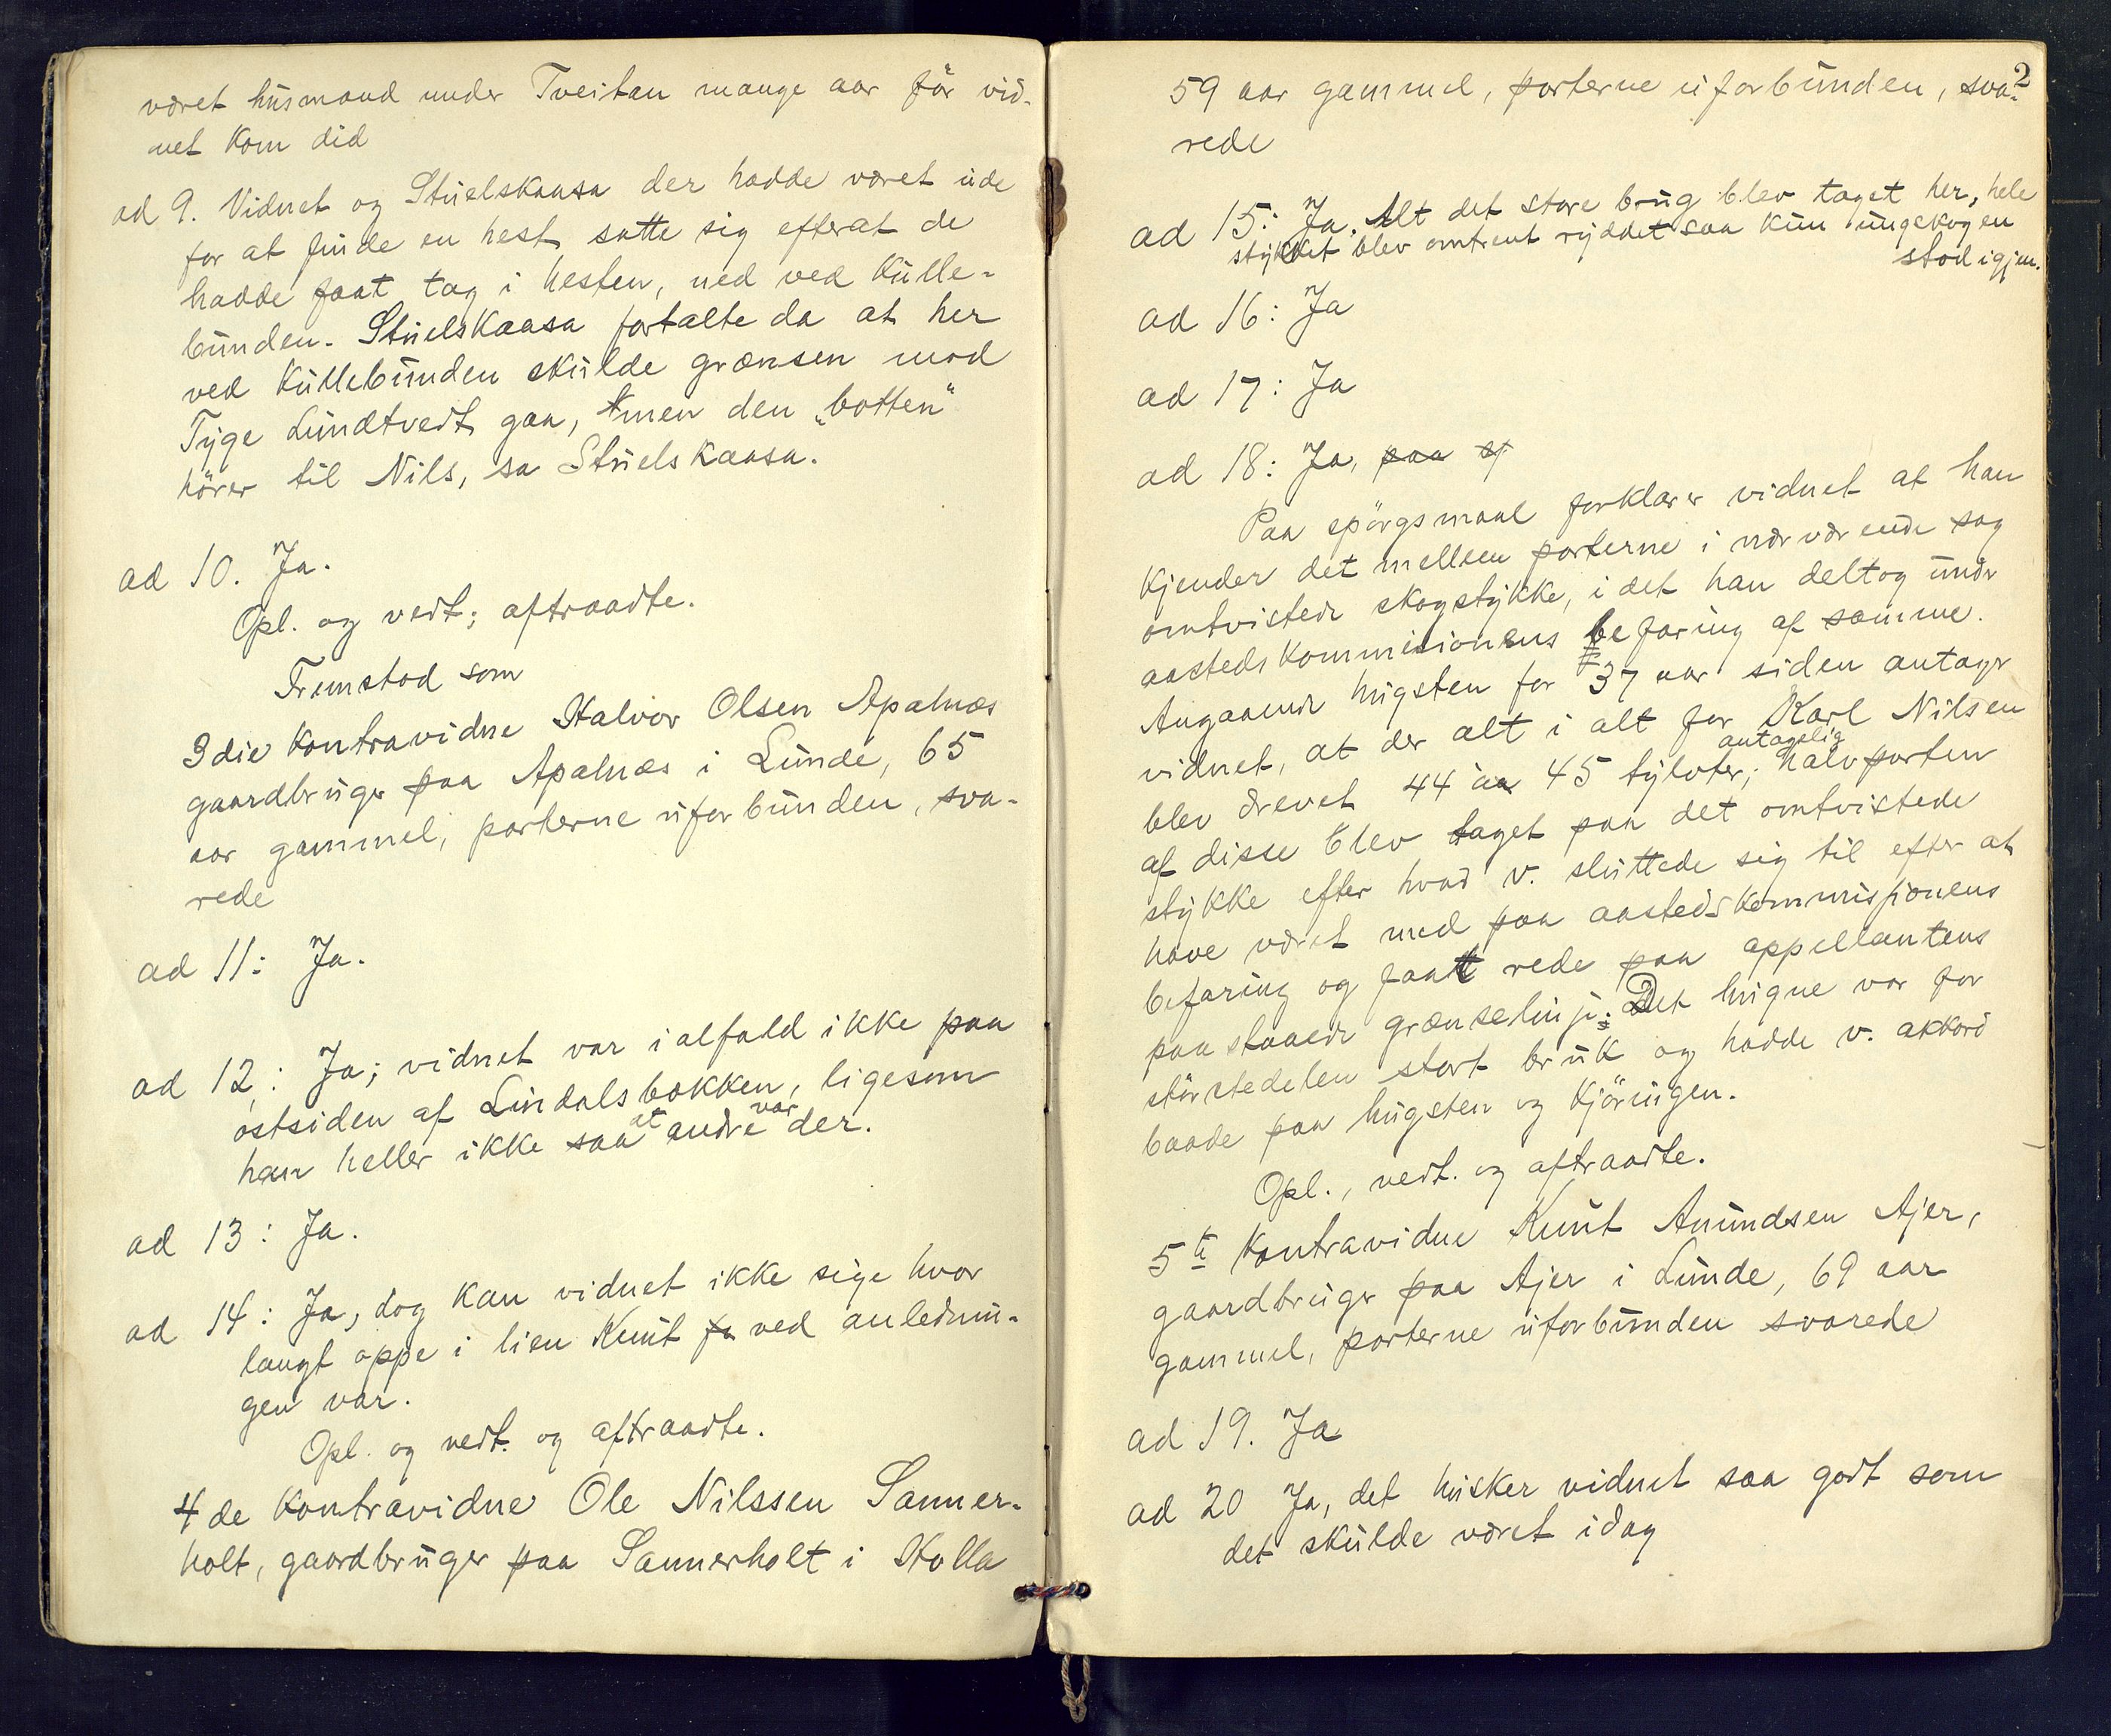 været husmand under Tveitan mange aar för vid-
net kom did
ad 9. Vidnet og Stuelskaasa der hadde været ude
for at finde en hest satte sig efterat de
hadde faat tag i hesten, ned ved Kulle-
bunden. Stuelskaasa fortalte da at her
ved Kullebunden skulde grænsen mod
Tyge Lundtvedt gaa, men den "botten"
hörer til Nils, sa Stuelskaasa.
ad 10. Ja.
Opl. og vedt; aftraadte.
Fremstod som
3die Kontravidne Halvor Olsen Apalnæs
gaardbruger paa Apalnæs i Lunde, 65
aar gammel, parterne uforbunden, sva-
rede
ad 11: Ja.
ad 12: Ja; vidnet var ialfald ikke paa
östsiden af Lindalsbækken, ligesom
han heller ikke saa at andre var der.
ad 13: Ja.
ad 14: Ja, dog kan vidnet ikke sige hvor
langt oppe i lien Knut fa ved anlednin-
gen var.
Opl. og vedt. og aftraadte.
4de Kontravidne Ole Nilssen Sanner-
holt, gaardbruger paa Sannerholt i Holla
2
59 aar gammel, parterne uforbunden, sva-
rede
ad 15: Ja. Alt det store brug blev taget her, hele
stykket blev omtrent ryddet saa kun ungskogen
stod igjen.
ad 16: Ja
ad 17: Ja
ad 18: Ja, paa sp
Paa spörgsmaal forklarer vidnet at han
kjender det mellem parterne i nærværende sag
omtvistede skogstykke, i det han deltog under
aastedskommisionens befaring af samme.
Angaaende hugsten for 37 aar siden antager
vidnet, at der alt i alt for Karl Nilsen
blev drevet 44 à 45 tylvter; antagelig halvparten
af disse blev taget paa det omtvistede
stykke efter hvad v. sluttede sig til efter at
have været med paa aastedskommissionens
befaring og faat rede paa appellantens
paastaaede grænselinje. Det hugne var for
störstedelen stort bruk og hadde v. akkord
baade paa hugsten og kjöringen.
Opl., vedt. og aftraadte.
5te Kontravidne Knut Anundsen Ajer,
gaardbruger paa Ajer i Lunde, 69 aar
gammel, parterne uforbunden svarede
ad 19. Ja
ad 20 Ja, det husker vidnet saa godt som
det skulde været idag